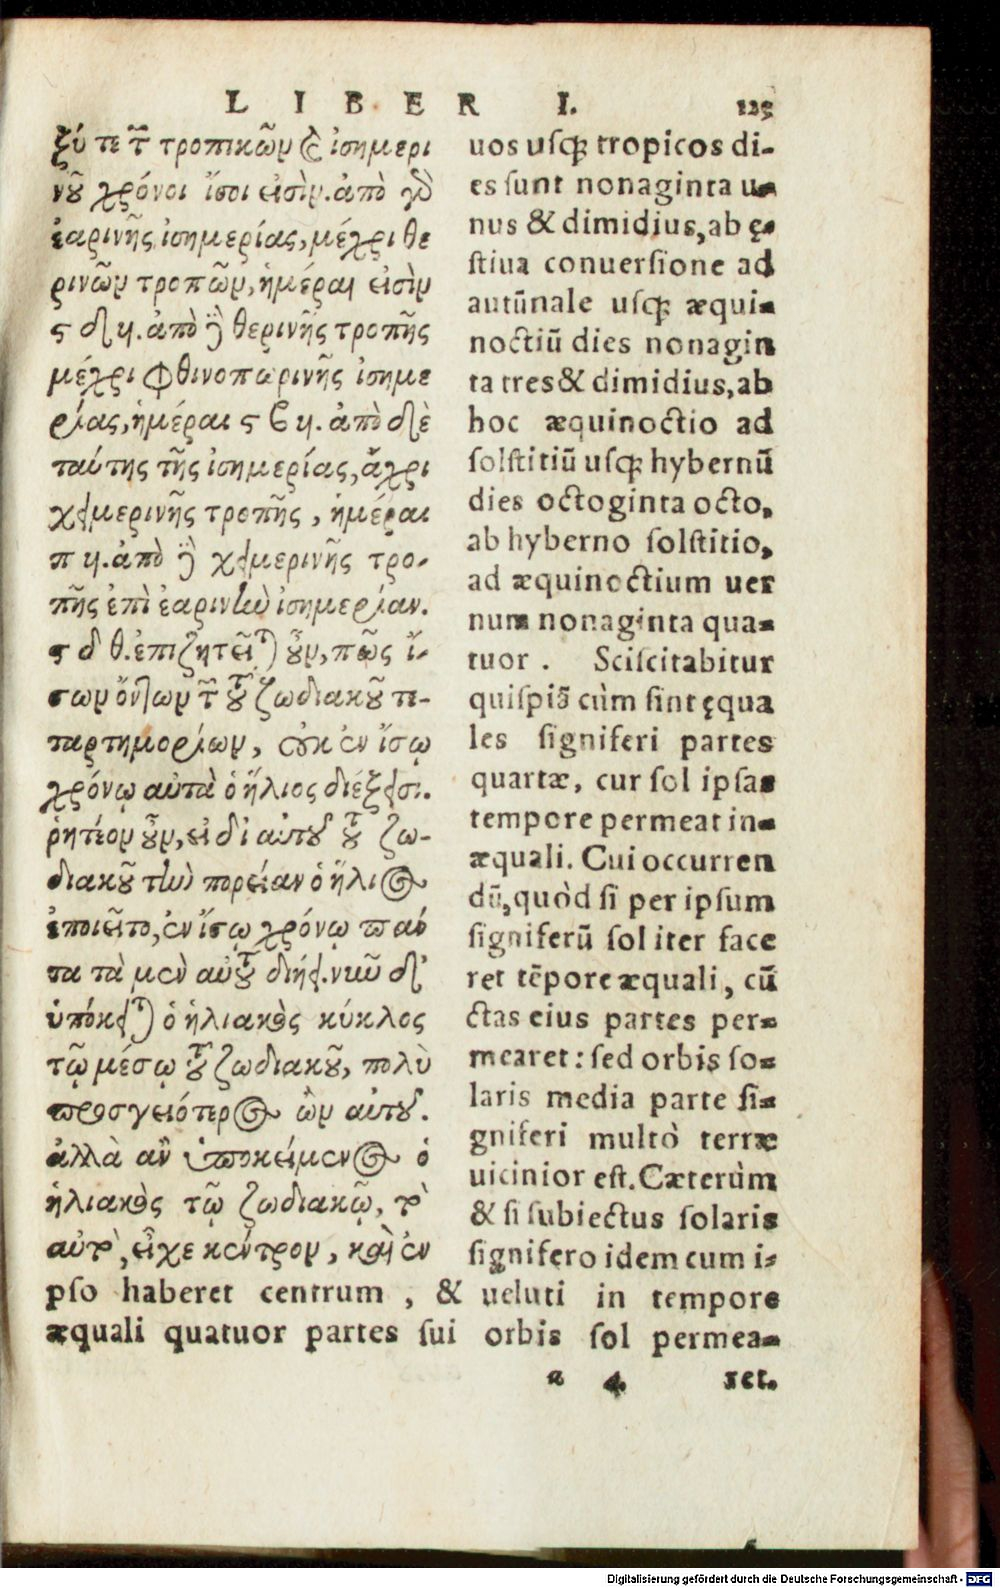 LIBER I. 125
ξύ τε τῶν τροπικῶν καὶ ἰσημερι
νοῦ χρόνοι ἴσοι εἰσὶν. ἀπὸ γὸ
ἐαρινῆς ἰσημερίας, μέχρι θε
ρινῶν τροπῶν, ἡμέραι εἰσὶν
ϛ δ ҹ. ἀπὸ θερινῆς τροπῆς
μέχρι φθινοπωρινῆς ἰσημε
ρίας, ἡμέραι ϛ β ҹ. ἀπὸ δὲ
ταύτης τῆς ἰσημερίας, ἄχρι
χειμερινῆς τροπῆς, ἡμέραι
π η. ἀπὸ χειμερινῆς τρο-
πῆς ἐπὶ ἐαρινὴν ἰσημερίαν.
ϛ δ θ. ἐπιζητεῖται οὖν, πῶς ἴ-
σων ὄντων τῶν τοῦ ζωδιακοῦ τε-
ταρτημορίων, οὐκ ἐν ἴσῳ
χρόνῳ αὐτὰ ὁ ἥλιος διέξεισι.
ῥητέον οὖν, εἰ δι᾽ αὐτοῦ τοῦ ζω-
διακοῦ τὴν πορείαν ὁ ἥλιος
ἐποιεῖτο, ἐν ἴσῳ χρόνῳ πάν
τα τὰ μὲν αὐτοῦ διῄει. νῦν δ᾽
ὑπόκειται ὁ ἡλιακὸς κύκλος
τῷ μέσῳ τοῦ ζωδιακοῦ, πολὺ
προσγειότερος ὢν αὐτοῦ.
ἀλλὰ ἂν ὑποκείμενος ὁ
ἡλιακὸς τῷ ζωδιακῷ, τὸ
αὐτὸ, εἶχε κέντρον, καὶ ἐν
uos usq; tropicos di-
es sunt nonaginta u-
nus & dimidius, ab ę-
stiua conuersione ad
autūnale usq; æqui-
noctiū dies nonagin
ta tres & dimidius, ab
hoc æquinoctio ad
solstitiū usq; hybernū
dies octoginta octo,
ab hyberno solstitio,
ad æquinoctium uer
num nonaginta qua-
tuor. Sciscitabitur
quispiā cùm sint ęqua
les signiferi partes
quartæ, cur sol ipsas
tempore permeat in-
æquali. Cui occurren
dū, quòd si per ipsum
signiferū sol iter face
ret tēpore æquali, cū
ctas eius partes per-
mearet: sed orbis so-
laris media parte si-
gniferi multò terræ
uicinior est. Cæterùm
& si subiectus solaris
signifero idem cum i-
pso haberet centrum, & ueluti in tempore
æquali quatuor partes sui orbis sol permea-
a 4 ret.
Digitalisierung gefördert durch die Deutsche Forschungsgemeinschaft - DFG